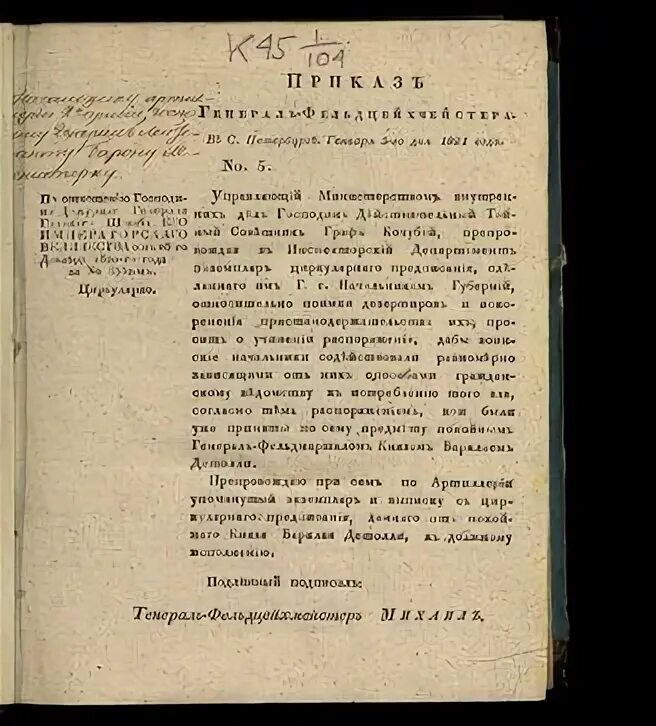 К 45 1/104
ПРИКАЗЪ
ГЕНЕРАЛЪ-ФЕЛЬДЦЕЙХМЕЙСТЕРА.
Въ С. Петербургѣ. Генваря дня 1821 года.
No. 5.
Начальнику артил-
Барону
По отношенію Господи-
на Дежурнаго Генерала
Главнаго Штаба ЕГО
ИМПЕРАТОРСКАГО
ВЕЛИЧЕСТВА отъ
года
за No
Циркулярно.
Управляющій Министерствомъ внутрен-
нихъ дѣлъ Господинъ Дѣйствительный Тай-
ный Совѣтникъ Графъ Кочубей, препро-
вождая въ Инспекторскій Департаментъ
экземпляръ циркулярнаго предписанія, сдѣ-
ланнаго имъ Г. г. Начальникамъ Губерній,
относительно поимки дезертировъ и иско-
рененія пристанодержательства ихъ, про-
ситъ о учиненіи распоряженія, дабы воин-
скіе начальники содѣйствовали равномѣрно
зависящими отъ нихъ способами граждан-
скому вѣдомству къ истребленію того зла,
согласно тѣмъ распоряженіямъ, кои были
уже приняты по сему предмету покойнымъ
Генералъ-Фельдмаршаломъ Княземъ Барклаемъ
Детолли.
Препровождаю при семъ по Артиллеріи
упомянутый экземпляръ и выписку съ цир-
кулярнаго предписанія, даннаго отъ покой-
наго Князя Барклая Детолли, къ должному
исполненію.
Подлинный подписалъ:
Генералъ-Фельдцейхмейстеръ МИХАИЛЪ.